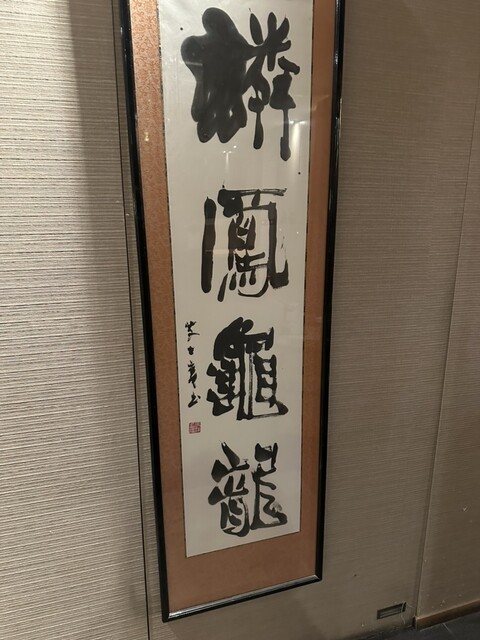 麟鳳龜龍